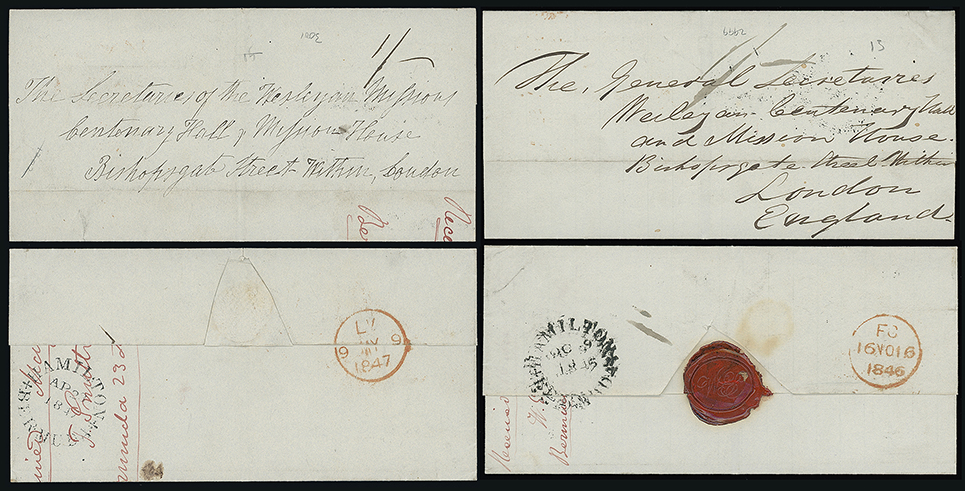 1/-
The Secretaries of the Wesleyan Missions
Centenary Hall & Mission House
Bishopsgate Street Within, London
1/-
15
The General Secretaries
Wesleyan Centenary Hall
and Mission House
Bishopsgate Street Within
London
England
LV
9 MY 9
1847
HAMILTON
BERMUDA
AP
18
Smith
23
HAMILTON
FC
16 NO 16
1846